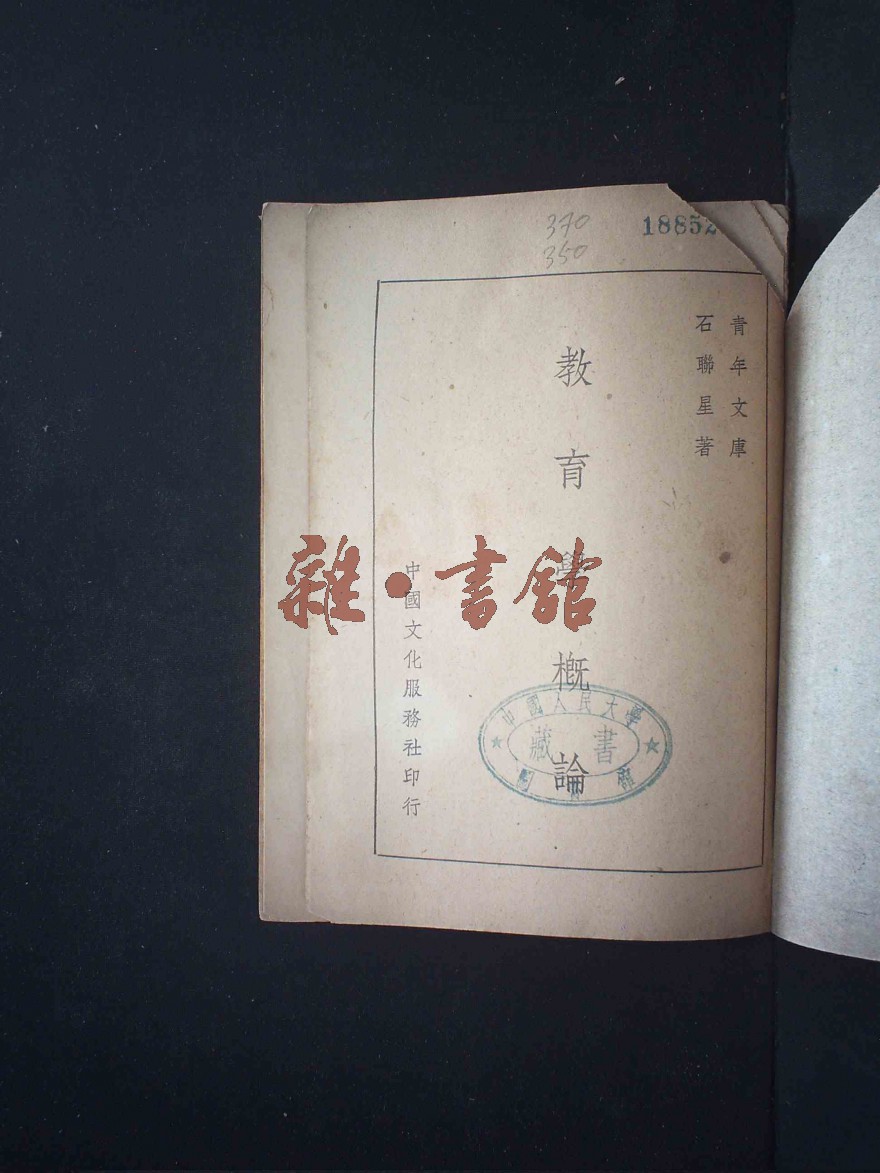 370
350
18852
青年文庫
石聯星著
教育學概論
中國文化服務社印行
雜·書館
中國人民大學
藏書
圖書館